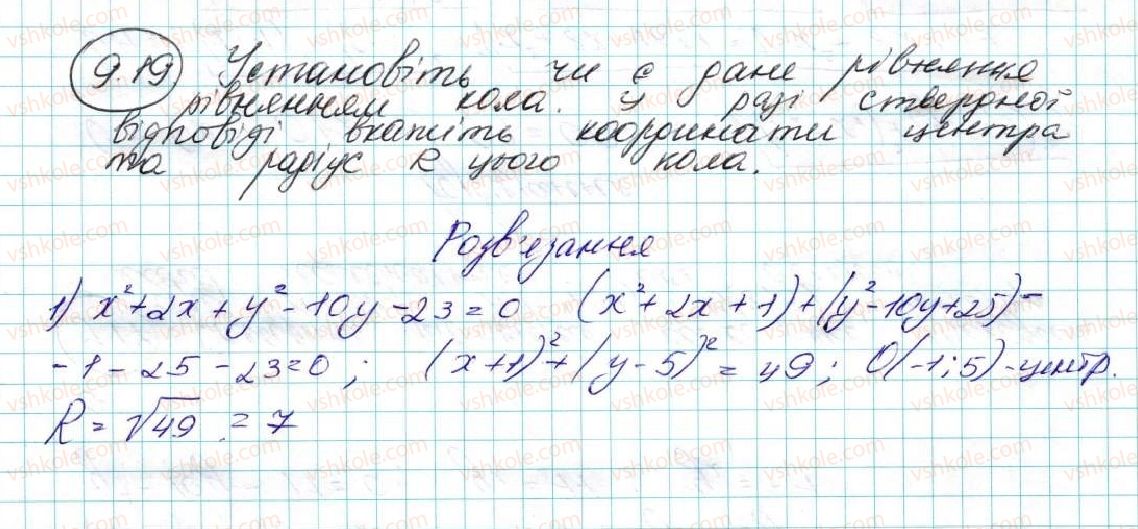 9.19 Установіть чи є дане рівняння
рівнянням кола. У разі ствердної
відповіді вкажіть координати центра
та радіус R цього кола.
Розв'язання
1) x²+2x+y²-10y-23=0 (x²+2x+1)+(y²-10y+25)-
-1-25-23=0; (x+1)²+(y-5)²=49; O(-1;5)-центр.
R=√49=7